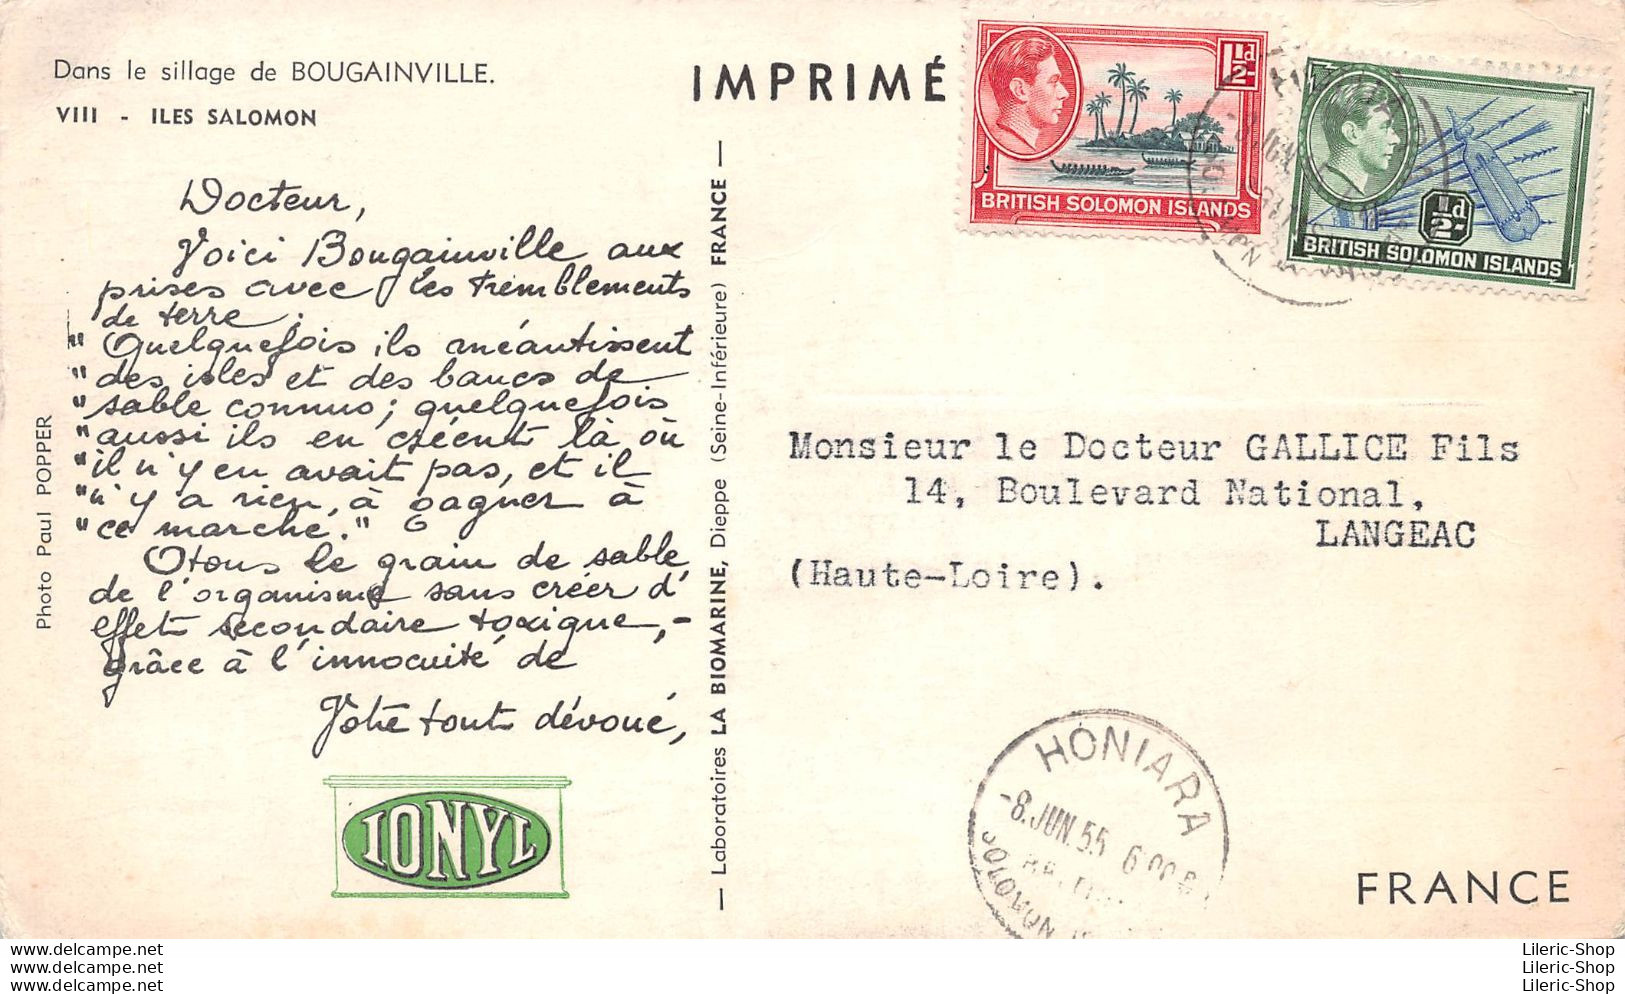 Dans le sillage de BOUGAINVILLE.
VIII - ILES SALOMON
IMPRIMÉ
1½d
BRITISH SOLOMON ISLANDS
½d
BRITISH SOLOMON ISLANDS
Docteur,
Voici Bougainville aux
prises avec les tremblements
de terre :
"Quelquefois ils anéantissent
"des isles et des bancs de
"sable connus; quelquefois
"aussi ils en créent là où
"il n'y en avait pas, et il
"n'y a rien à gagner à
"ce marché."
Otons le grain de sable
de l'organisme sans créer d'
effet secondaire toxique, -
grâce à l'innocuité de
Votre tout dévoué,
IONYL
Photo Paul POPPER
— Laboratoires LA BIOMARINE, Dieppe (Seine-Inférieure) FRANCE —
Monsieur le Docteur GALLICE Fils
14, Boulevard National,
LANGEAC
(Haute-Loire).
HONIARA
-8.JUN.55
SOLOMON
FRANCE
IONYL
IONYL
IONYL
Lileric-Shop
Lileric-Shop
Lileric-Shop